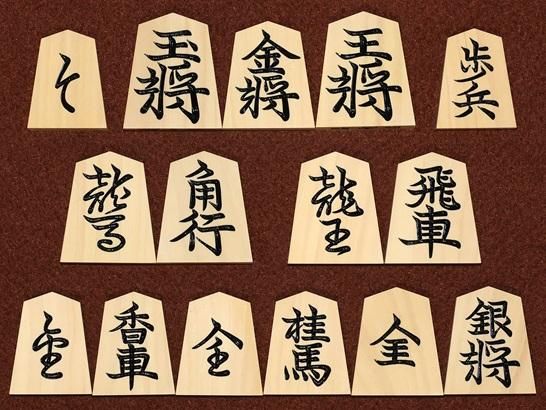 と
玉將
金將
王將
歩兵
龍馬
角行
龍王
飛車
香車
全
桂馬
全
銀將